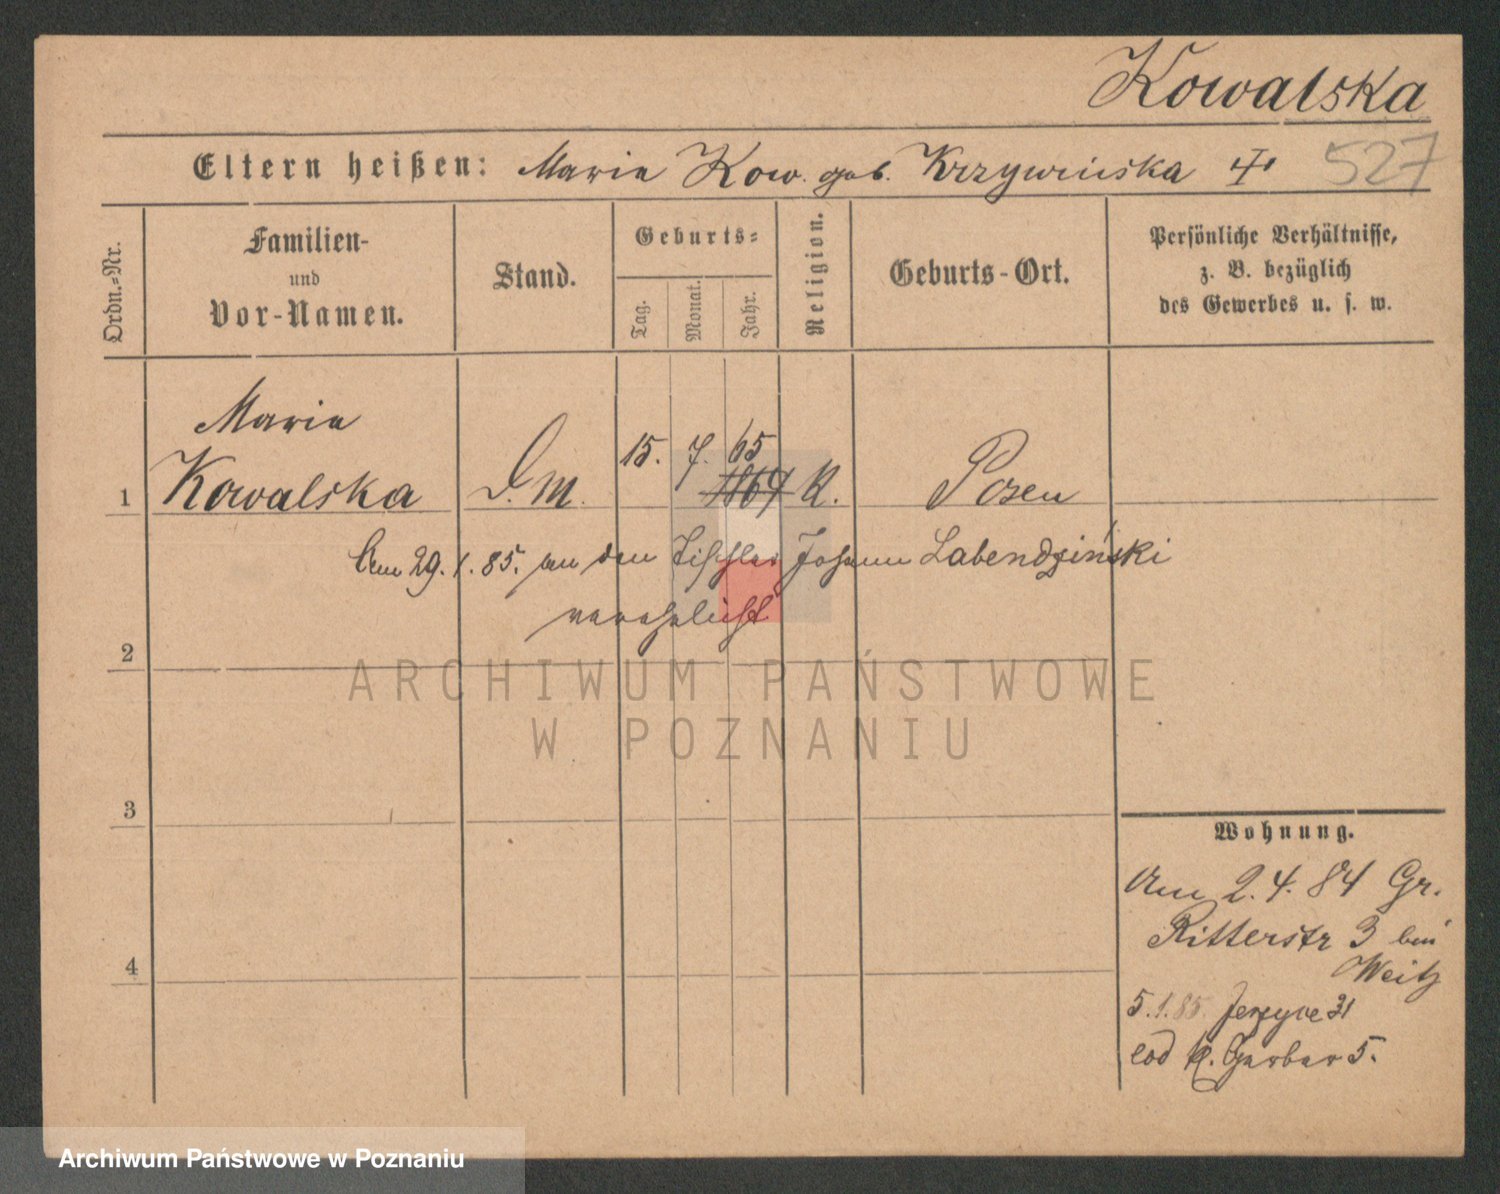 Kowalska
Eltern heißen: Maria Kow. geb. Krzywińska
527
Ordn.-Nr.
Familien-
und
Vor-Namen.
Stand.
Geburts-
Tag.
Monat.
Jahr.
Religion.
Geburts-Ort.
Persönliche Verhältnisse,
z. B. bezüglich
des Gewerbes u. s. w.
Maria
1 Kowalska D.M. 15. 7. 65 1864 K. Posen
Am 29.1.85. an den Tischler Johann Labendziński
verehelicht
2
ARCHIWUM PAŃSTWOWE
W POZNANIU
3
Wohnung.
Am 2.4.84 Gr.
Ritterstr 3 bei
Weitz
4
5.1.85. Jerzyce 31
eod Kl. Gerber 5.
Archiwum Państwowe w Poznaniu